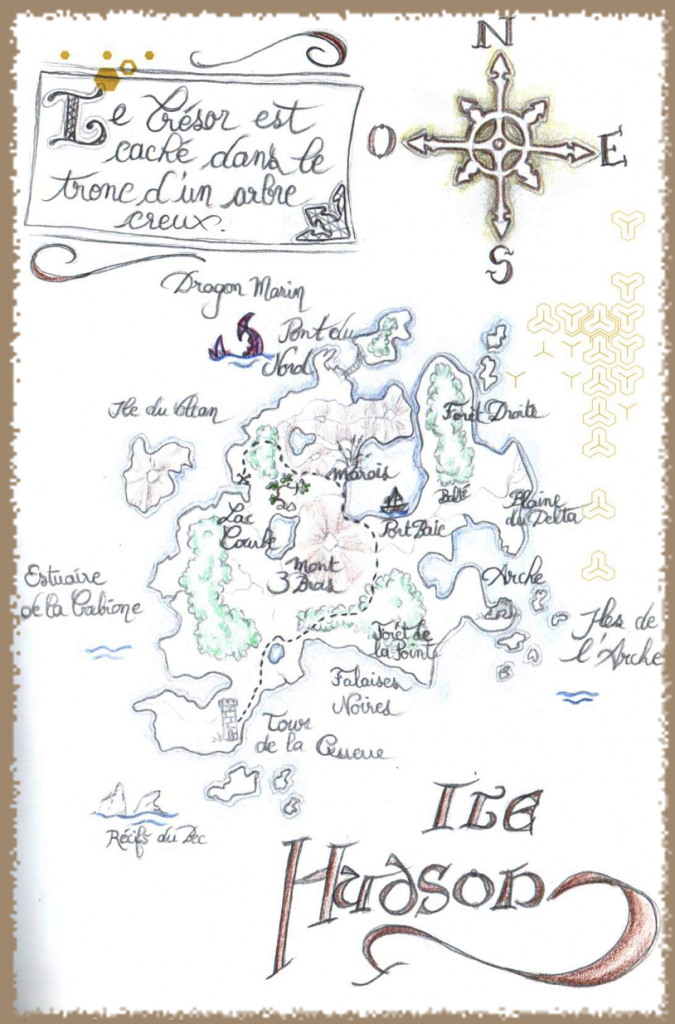 N
O
E
S
Le Trésor est
caché dans le
tronc d'un arbre
creux.
Dragon Marin
Pont du
Nord
Ile du Volcan
Forêt Droite
Marais
Port Baie
Plaine
du Delta
Lac
Courbe
Mont
3 Bras
Arche
Estuaire
de la
Iles de
l'Arche
Forêt de
la Pointe
Falaises
Noires
Tour
de la Queue
Récifs du Bec
ILE
Hudson